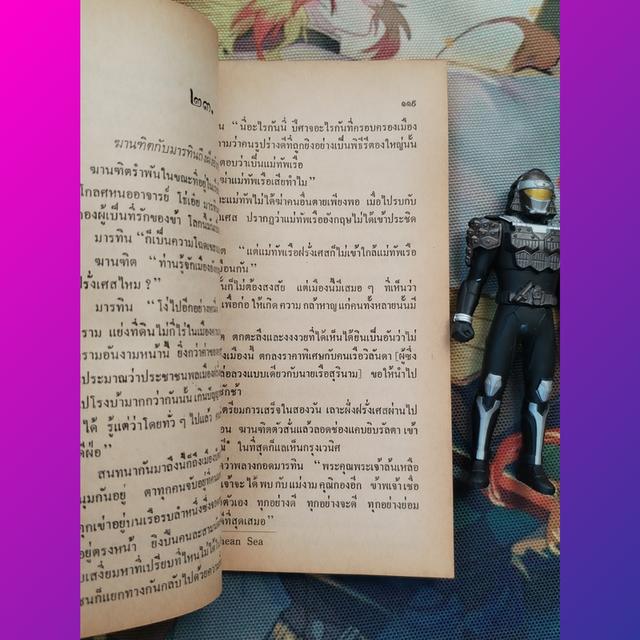 ๒๓.
ฆานฑิตกับมารทินถึงฝั่งอังกฤษ
ฆานฑิตรำพันในขณะที่อยู่ใน
โกลศหนออาจารย์ ไร้เอ๋ย มาร
ของผู้เป็นที่รักของข้า โลกนี้
มารทิน “ก็เป็นความโฉด
ฆานฑิต “ท่านรู้จักเมือง
ฝรั่งเศสไหม ?”
มารทิน “โง่ไปอีกอย่างหนึ่ง
ราม แย่งที่ดินไม่กี่ไร่ในเมือง
รามอันงามหน้านี้ ยิ่งกว่าค่าของ
ประมาณว่าประชาชนพลเมือง
ปโรงบ้ามากกว่ากันนั้น เกินปัญญา
ได้ รู้แต่ว่าโดยทั่ว ๆ ไปแล้ว
ดีฝ่อ”
สนทนากันมาถึงนี้ก็ถึงเมือง
นุมกันอยู่ ตาทุกคนจับอยู่ที่
ุกเข่าอยู่บนเรือรบลำหนึ่งซึ่ง
อยู่ตรงหน้า ยิงปืนคนละสาม
บเสงี่ยมหาที่เปรียบที่ไหนไม่ได้
ชนก็แยกทางกันกลับไปด้วยความ
๑๑๕
น “นี่อะไรกันนี่ ปีศาจอะไรกันที่ครอบครองเมือง
ามว่าคนรูปร่างดีที่ถูกยิงอย่างเป็นพิธีรีตองใหญ่นั้น
ตอบว่าเป็นแม่ทัพเรือ
ฆ่าแม่ทัพเรือเสียทำไม”
ะแม่ทัพไม่ได้ฆ่าคนอื่นตายเพียงพอ เมื่อไปรบกับ
เศส ปรากฏว่าแม่ทัพเรืออังกฤษไม่ได้เข้าประชิด
ต “แต่แม่ทัพเรือฝรั่งเศสก็ไม่เข้าใกล้แม่ทัพเรือ
มือนกัน”
นั้นก็ไม่ต้องสงสัย แต่เมืองนี้มีเสมอ ๆ ที่เห็นว่า
เพื่อก่อ ให้เกิด ความ กล้าหาญ แก่คนทั้งหลายนั้นมี
ต ตกตะลึงและงงงวยที่ได้เห็นได้ยินเป็นอันว่าไม่
ยเมืองนี้ ตกลงราคาพิเศษกับคนเรือวิลันดา [ผู้ซึ่ง
ล่อลวงแบบเดียวกับนายเรือสุรินาม] ขอให้นำไป
ักช้า
ตรียมการเสร็จในสองวัน เลาะฝั่งฝรั่งเศสผ่านไป
อน ฆานฑิตตัวสั่นแล้วลอดช่องแคบยิบรัลตา เข้า
น๊ ในที่สุดก็แลเห็นกรุงเวนิศ
ตว่าพลางกอดมารทิน “พระคุณพระเจ้าล้นเหลือ
เจ้าจะได้ พบ กับ แม่งาม คุณิกองอีก ข้าพเจ้าเชื่อ
ตัวเอง ทุกอย่างดี ทุกอย่างจะดี ทุกอย่างย่อม
ดีที่สุดเสมอ”
nean Sea